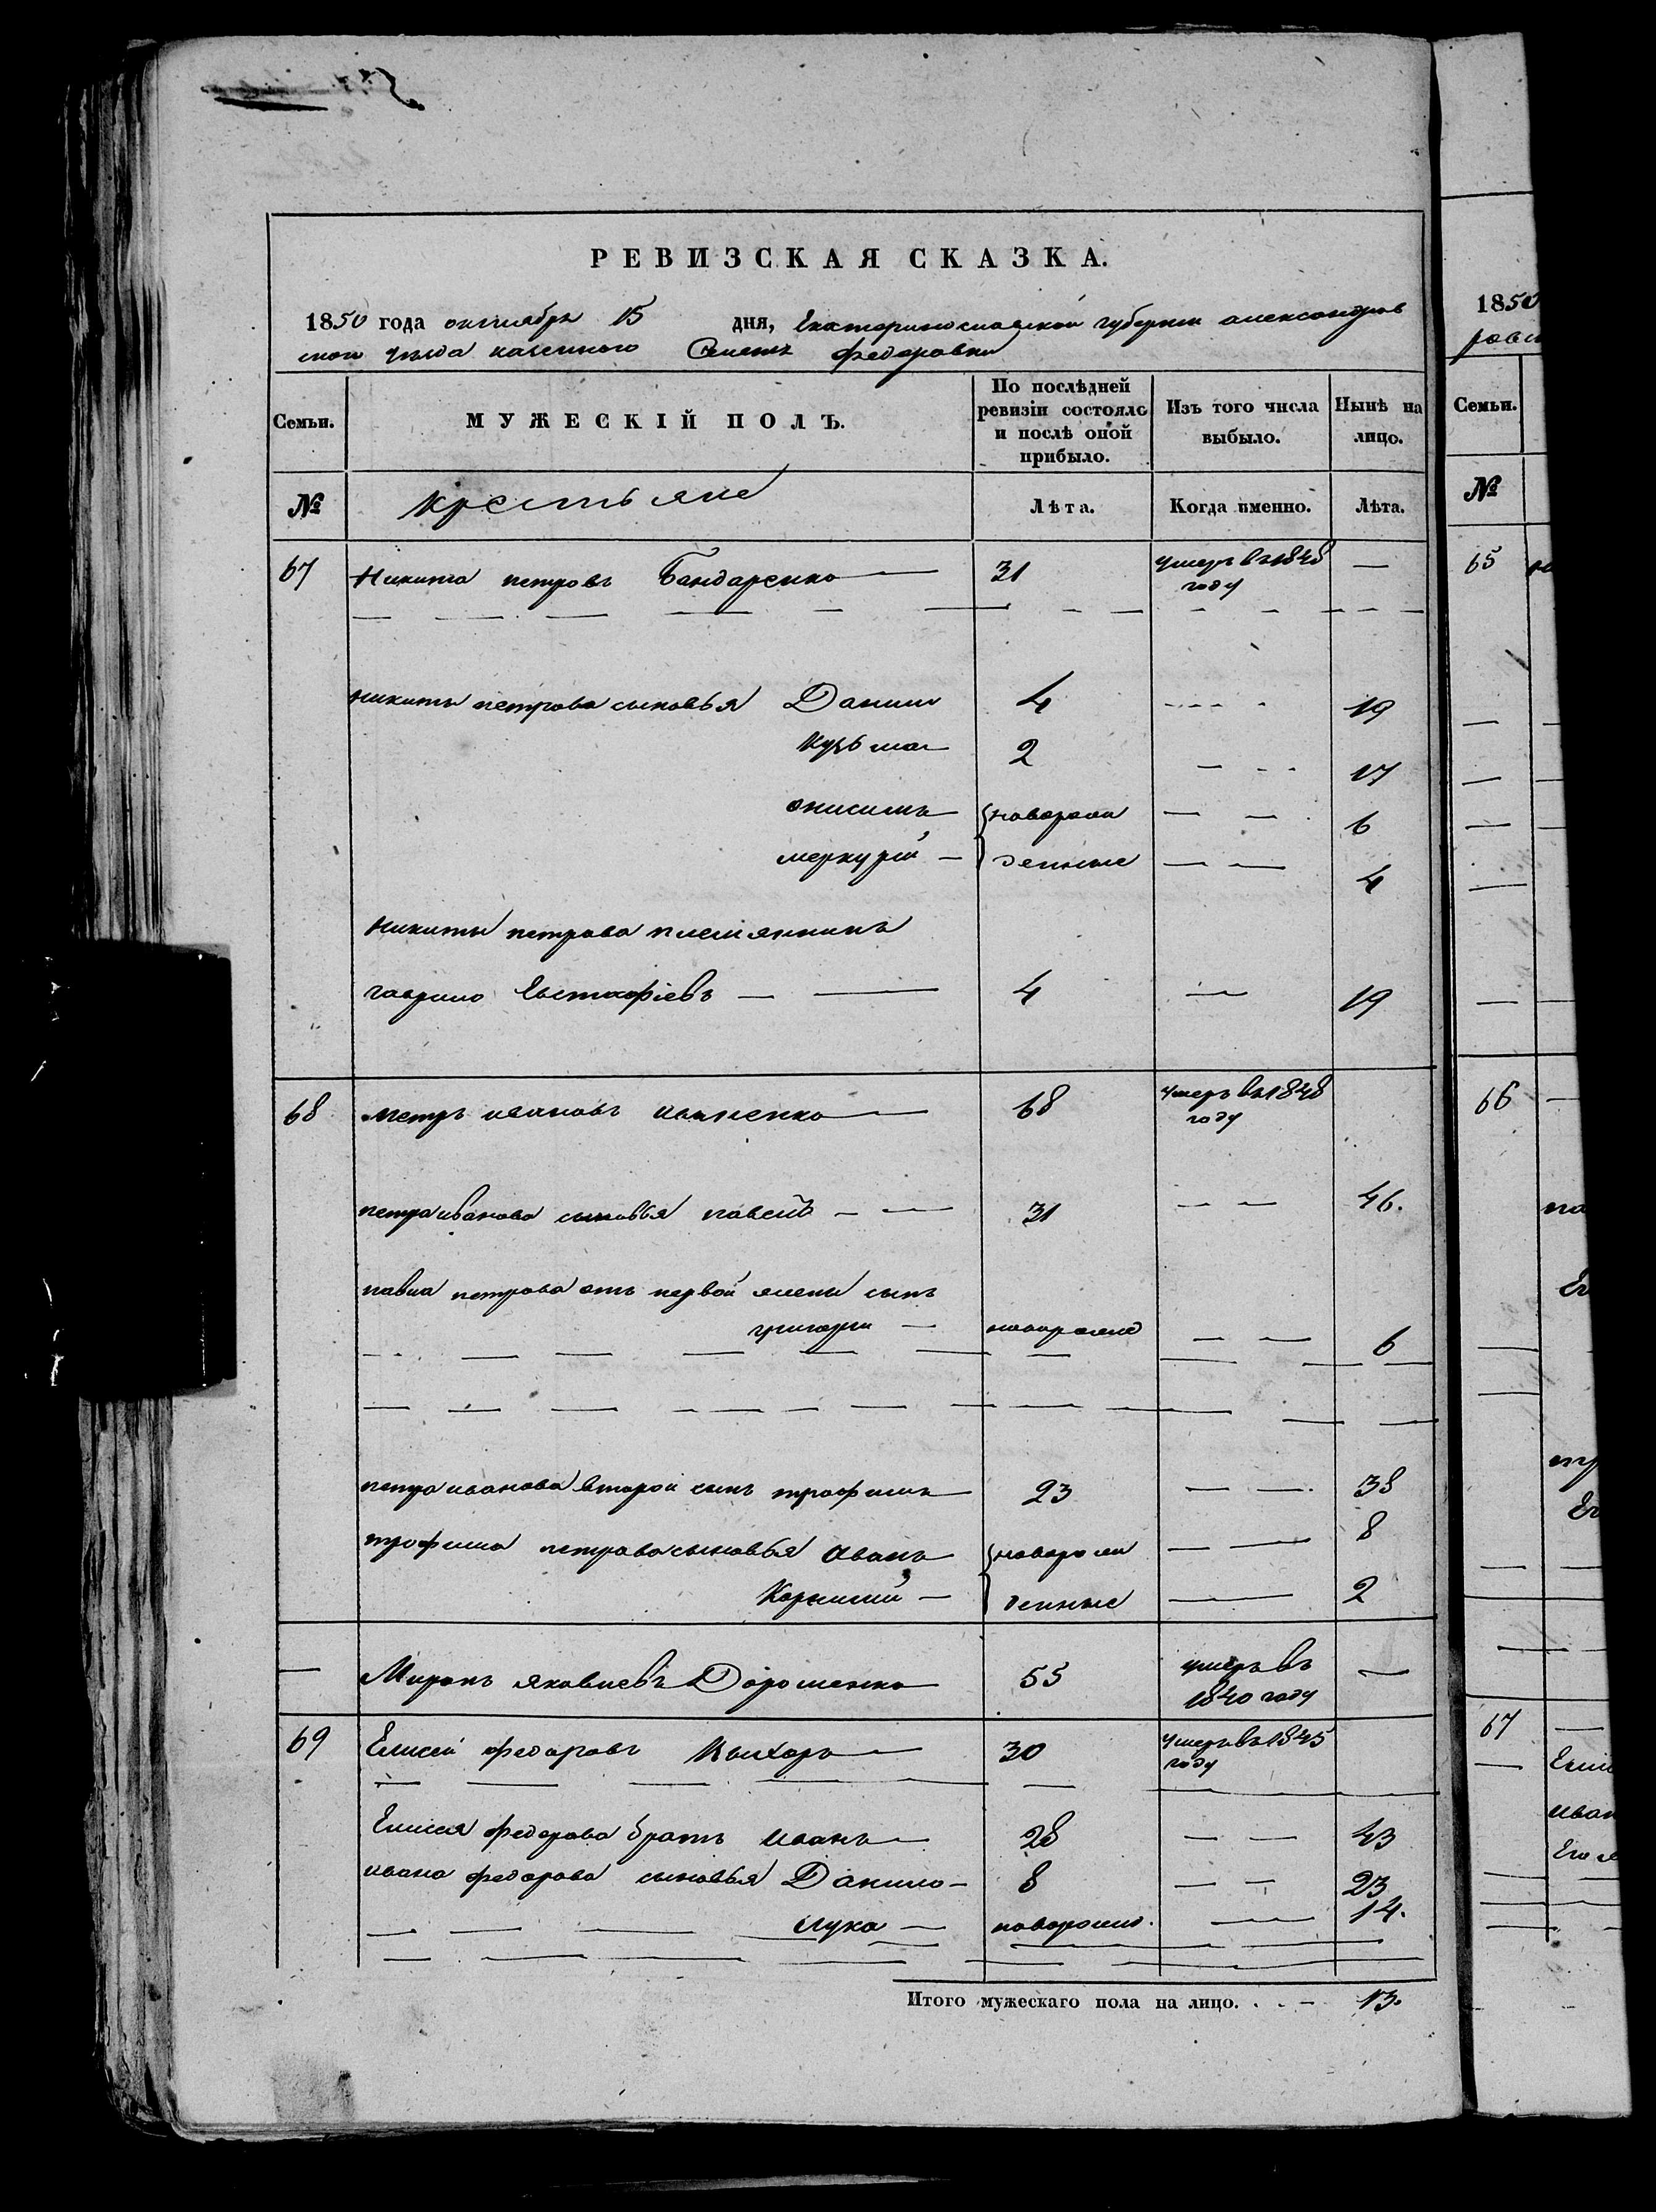 РЕВИЗСКАЯ СКАЗКА.
1850 года октября 15 дня, Екатеринославской губернии александров
ского уезда казенного Селенія федоровки
Семьи. МУЖЕСКІЙ ПОЛЪ. По послѣдней ревизіи состояло и послѣ оной прибыло. Изъ того числа выбыло. Нынѣ на лицо.
№ крестьяне Лѣта. Когда именно. Лѣта.
67 Никита петровъ Бандаренко — 31 умеръ въ 1848 году —
никиты петрова сыновья Данило 4 - - - - 19
Кузьма — 2 — - - 17
онисимъ — новорож — — 6
меркурій — денные — — 4
Никиты петрова племянникъ
гаврило Евстафіевъ — — 4 — 19
68 петръ ивановъ иваненко — 68 умеръ въ 1848 году
петра иванова сыновья павелъ — — 31 — — 46.
павла петрова отъ первой жены сынъ
григорій — новорожд — — 6
петра иванова второй сынъ трофимъ — 23 — — 38
трофима петрова сыновья иванъ — новорож — — 8
Корнилій — денные — 2
— Миронъ яковлевъ Дорошенко 55 умеръ въ 1840 году —
69 Елисей федоровъ — 30 умеръ въ 1845 году
Елисея федорова братъ иванъ — 28 — — 43
ивана федорова сыновья Данило — 8 — — 23
лука — новорожд. — 14.
Итого мужескаго пола на лицо. . . — 13.
1850
Семьи.
№
65
66
67